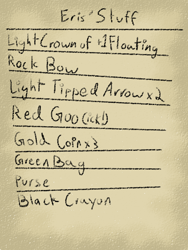 Eris' Stuff
Light Crown of +1 Floating
Rock Bow
Light Tipped Arrow x2
Red Goo (ick!)
Gold Coin x3
Green Bag
Purse
Black Crayon